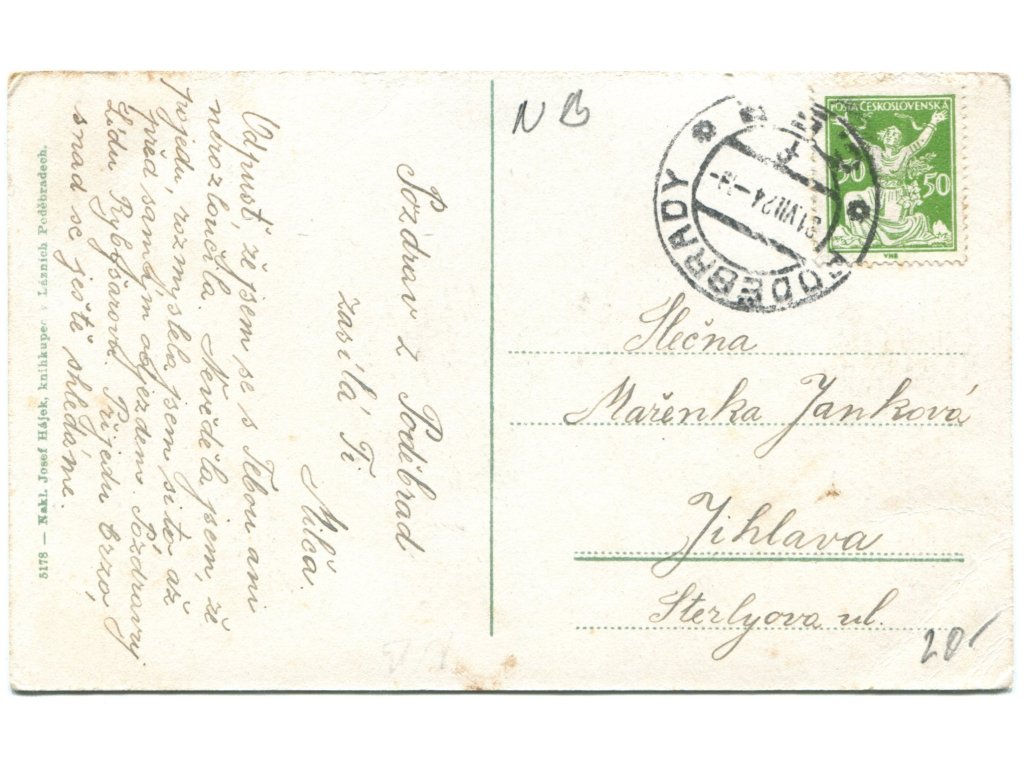 5178 — Nakl. Josef Hájek, knihkupec v Lázních Poděbradech.
Pozdrav z Poděbrad
zasílá Ti
Milča.
Odpusť, že jsem se s Tebou ani
nerozloučila. Nevěděla jsem, že
pojedu, rozmyslela jsem si to až
před samým odjezdem. Pozdravuj
Lídu Rybšarovu. Přijedu brzo,
snad se ještě shledáme.
N B
POŠTA ČESKOSLOVENSKÁ
50 50
VHB
PODĚBRADY
31 VII 24
Slečna
Mařenka Janková
Jihlava
Sterlyova ul.
20-